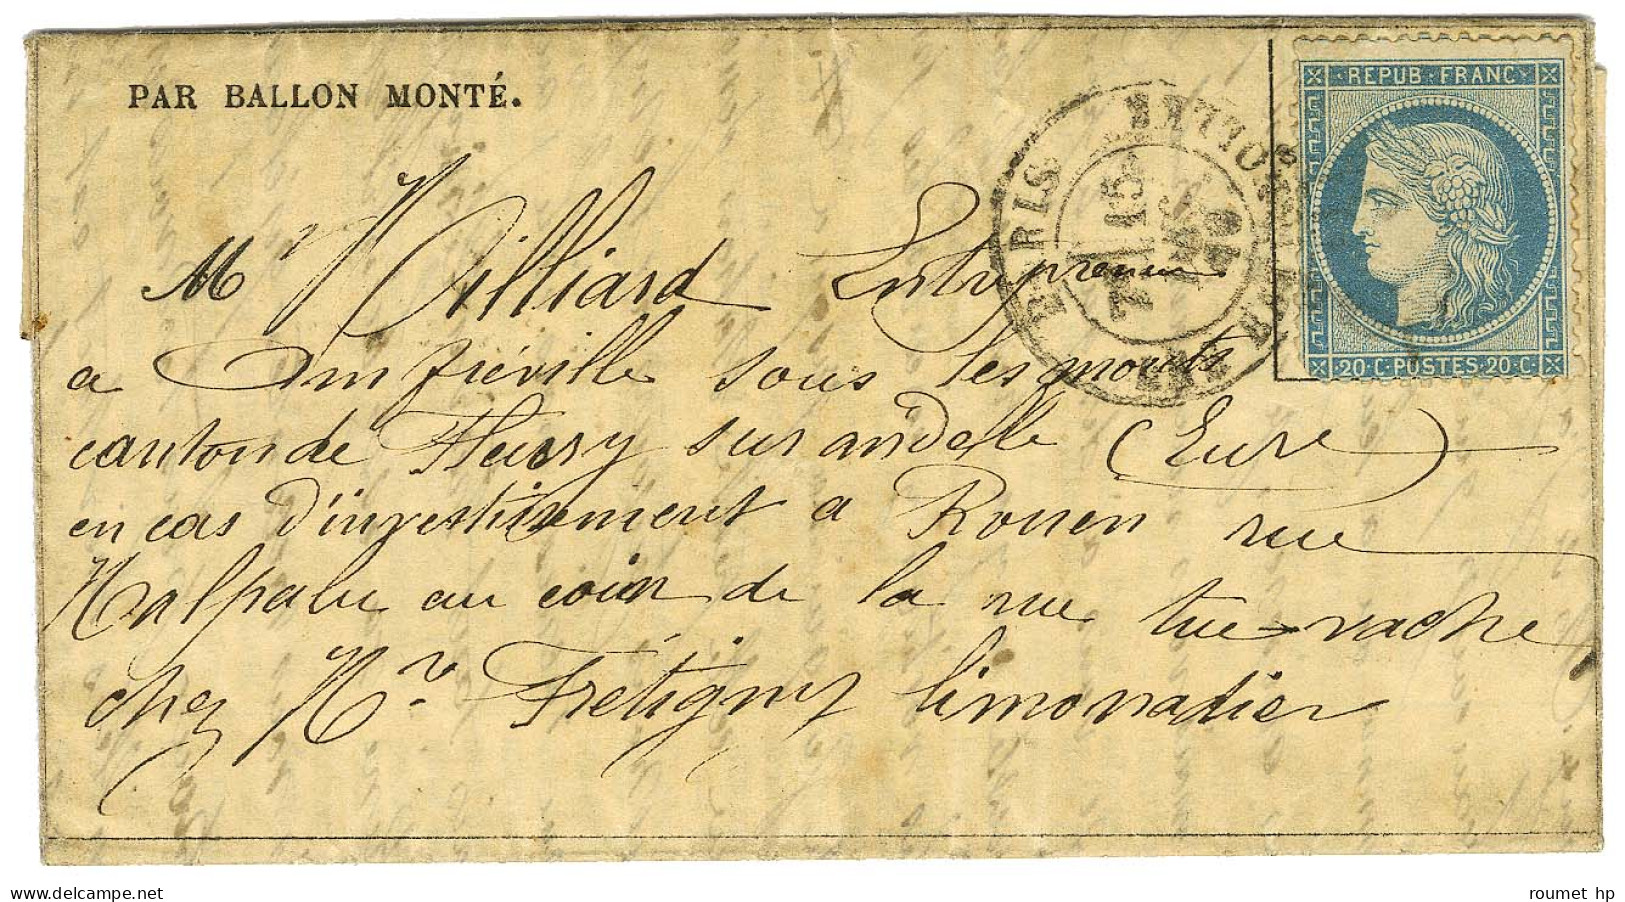 PAR BALLON MONTÉ.
REPUB · FRANC
20 · C · POSTES · 20 · C ·
PARIS
15
70
M Villiard Entrepreneur
a Amfréville sous les monts
canton de Fleury sur andelle (Eure)
en cas d'investissement a Rouen rue
Malpalu au coin de la rue tue-vache
chez Mr Frétigny limonadier
delcampe.net
roumet hp